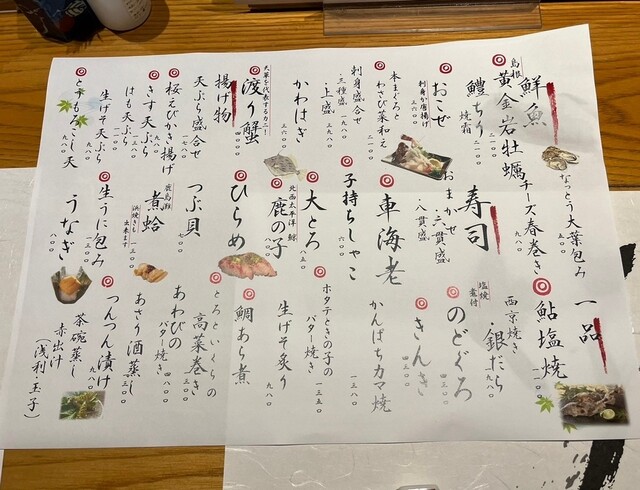 鮮魚
島根
黄金岩牡蠣
鱧ちり
焼霜
二一〇〇
おこぜ
刺身か唐揚げ
本まぐろと
わさび菜和え
刺身盛合せ
・三種盛
一九八〇
・上盛
三二九〇
かわはぎ
三六〇〇
天草を代表するカニ!
渡り蟹
揚げ物
天ぷら盛合せ
一七八〇
桜えびかき揚げ
きす天ぷら
はも天ぷら
生げそ天ぷら
九八〇
とうもろこし天
九八〇
なっとう大葉包み
五八〇
チーズ春巻き
九八〇
寿司
おまかせ
・六貫盛
・八貫盛
車海老
子持ちしゃこ
六〇〇
大とろ
八五〇
北西太平洋 鯨
鹿の子
ひらめ
つぶ貝
七〇〇
鹿島灘
煮蛤
浜焼きも出来ます
一三〇〇
生うに包み
うなぎ
一品
鮎塩焼
一二〇〇
西京焼き
・銀だら
九八〇
塩焼
煮付
のどぐろ
四三〇〇
きんき
四三〇〇
かんぱちカマ焼
一三八〇
ホタテときの子の
バター焼き
一三五〇
生げそ炙り
八三〇
鯛あら煮
とろといくらの
高菜巻き
あわびの
バター焼き
四八〇〇
あさり酒蒸し
一三〇〇
つんつん漬け
九八〇
茶碗蒸し
赤出汁
(浅利・玉子)